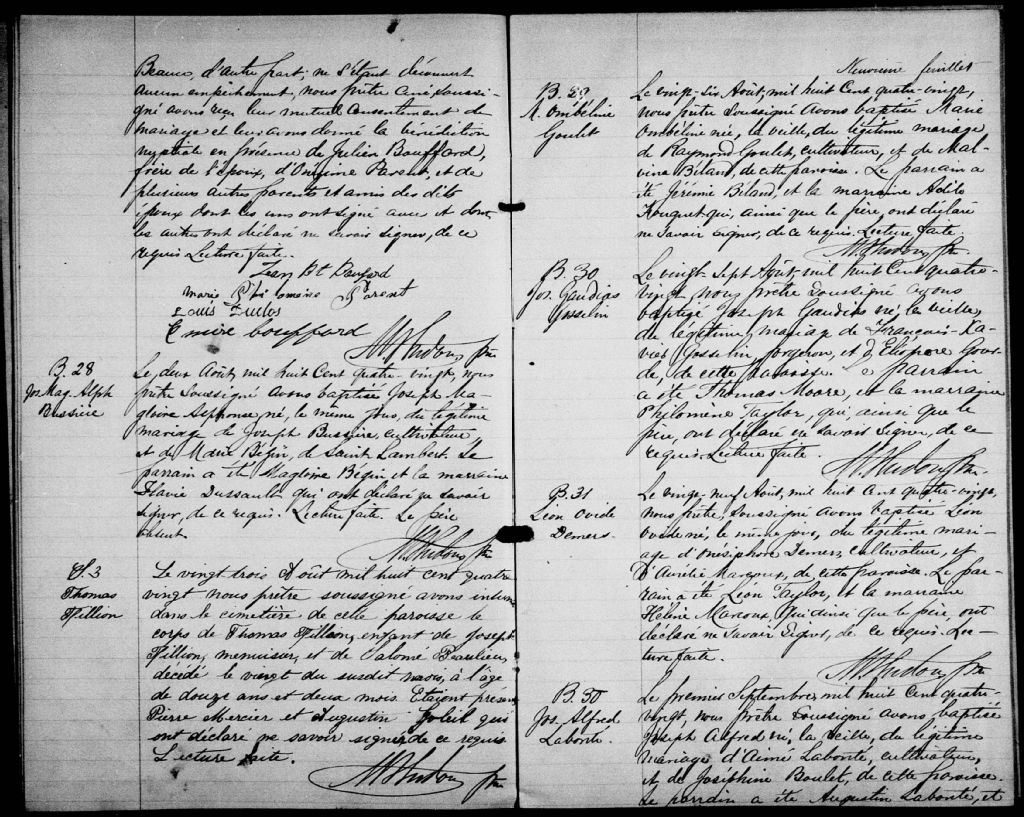 Beauce, d'autre part; ne s'étant découvert
aucun empêchement, nous prêtre curé soussi-
gné avons reçu leur mutuel consentement de
mariage et leur avons donné la bénédiction
nuptiale en présence de Julien Bouffard,
frère de l'époux, d'Onésime Parent, et de
plusieurs autres parents et amis des dits
époux dont les uns ont signé avec et dont
les autres ont déclaré ne savoir signer, de ce
requis Lecture faite.
Jean Bt
marie Parent
Louis
bouffard
Ptre
B. 28
Jos Mag. Alph
Bussière
Le deux Août, mil huit Cent quatre-vingt, nous
prêtre Soussigné avons baptisé Joseph Ma-
gloire Alphonse né, le même jour, du légitime
mariage de Joseph Bussière, cultivateur
et de Marie Bégin, de Saint Lambert. Le
parrain a été Magloire Bégin et la marraine
Flavie Dussault qui ont déclaré ne savoir
signer, de ce requis. Lecture faite. Le père
absent.
Ptre
S. 3
Thomas
Fillion
Le vingt trois Août mil huit cent quatre
vingt nous prêtre soussigné avons inhumé
dans le cimetière de cette paroisse le
corps de Thomas Fillion, enfant de Joseph
Fillion, menuisier, et de Salomé Beaulieu,
décédé le vingt du susdit mois, à l'âge
de douze ans et deux mois. Etaient présents
Pierre Mercier et Augustin qui
ont déclaré ne savoir signer de ce requis
Lecture faite.
Ptre
Neuvième feuillet
B. 29
M. Ombéline
Goulet
Le vingt-six Août, mil huit Cent quatre-vingt,
nous prêtre Soussigné avons baptisé Marie
Ombéline née, la veille, du légitime mariage
de Raymond Goulet, cultivateur, et de Mal-
vina Bilaud, de cette paroisse. Le parrain a
été Jérémie Bilaud, et la marraine Adèle
Fouquet qui, ainsi que le père, ont déclaré
ne savoir signer, de ce requis. Lecture faite.
Ptre
B. 30
Jos. Gaudias
Gosselin
Le vingt-sept Août, mil huit Cent quatre-
vingt, nous prêtre Soussigné avons
baptisé Joseph Gaudias né, la veille,
du légitime mariage de François-Xa-
vier Gosselin forgeron, et d'
de, de cette paroisse. Le parrain
a été Thomas Moore, et la marraine
Philomène Taylor, qui, ainsi que le
père, ont déclaré ne savoir signer, de ce
requis. Lecture faite.
Ptre
B. 31
Léon Ovide
Demers.
Le vingt-neuf Août, mil huit cent quatre-vingt,
nous prêtre, soussigné avons baptisé Léon
Ovide né, le même jour, du légitime mari-
age d'Onésiphore Demers, cultivateur, et
D'Aurélie Marcoux, de cette paroisse. Le par-
rain a été Léon Taylor, et la marraine
Hélène Marcoux, qui ainsi que le père, ont
déclaré ne savoir signer, de ce requis. Lec-
ture faite.
Ptre
B. 30
Jos. Alfred
Labonté.
Le premier Septembre, mil huit Cent quatre-
vingt, nous prêtre Soussigné avons baptisé
Joseph Alfred né, la veille, du légitime
mariage d'Aimé Labonté, cultivateur,
et de Joséphine Boulet, de cette paroisse.
Le parrain a été Augustin Labonté, et